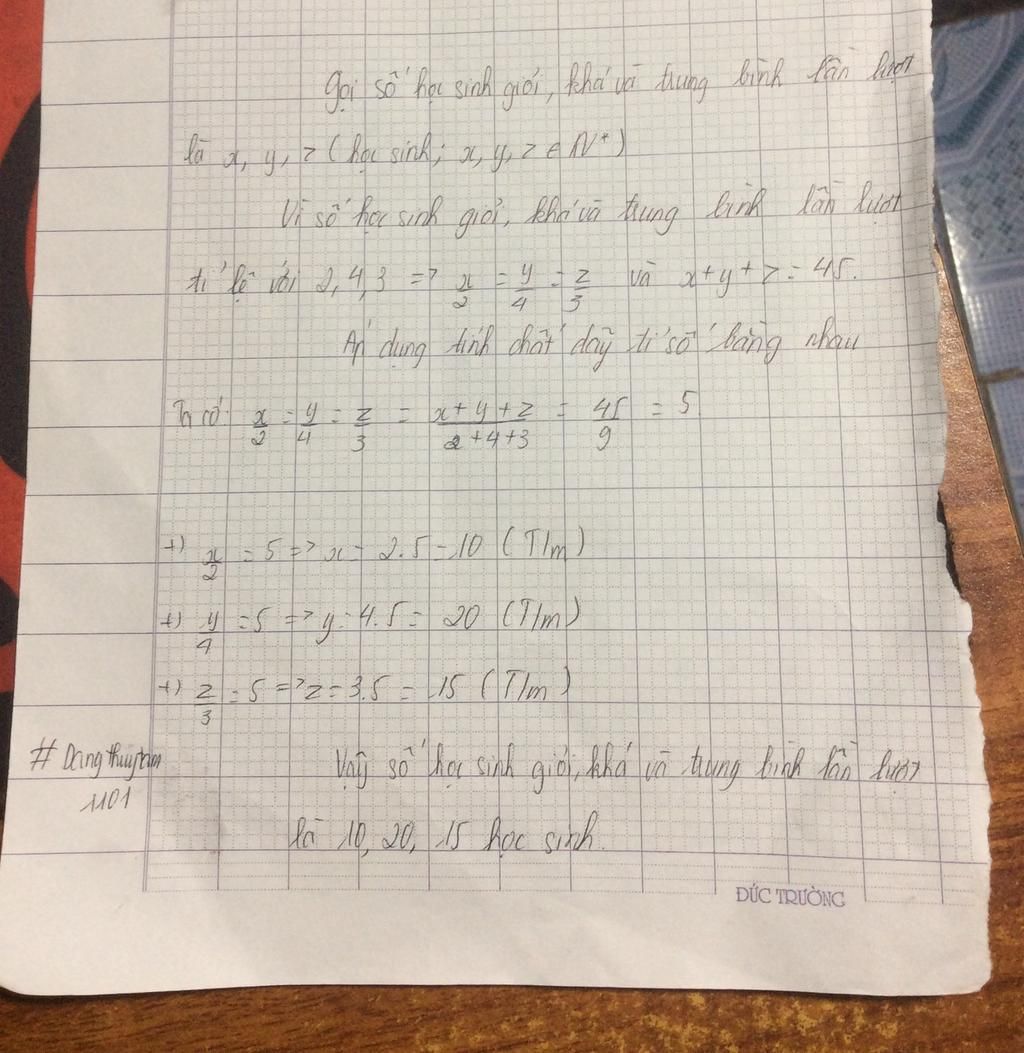 Gọi số học sinh giỏi, khá và trung bình lần lượt
là x, y, z (học sinh; x, y, z ∈ N*)
Vì số học sinh giỏi, khá và trung bình lần lượt
tỉ lệ với 2, 4, 3 => x/2 = y/4 = z/3 và x+y+z = 45.
Áp dụng tính chất dãy tỉ số bằng nhau
Ta có: x/2 = y/4 = z/3 = (x+y+z)/(2+4+3) = 45/9 = 5
+) x/2 = 5 => x = 2.5 = 10 (T/m)
+) y/4 = 5 => y = 4.5 = 20 (T/m)
+) z/3 = 5 => z = 3.5 = 15 (T/m)
# Dang thuy tam
1101
Vậy số học sinh giỏi, khá và trung bình lần lượt
là 10, 20, 15 học sinh.
ĐỨC TRƯỜNG